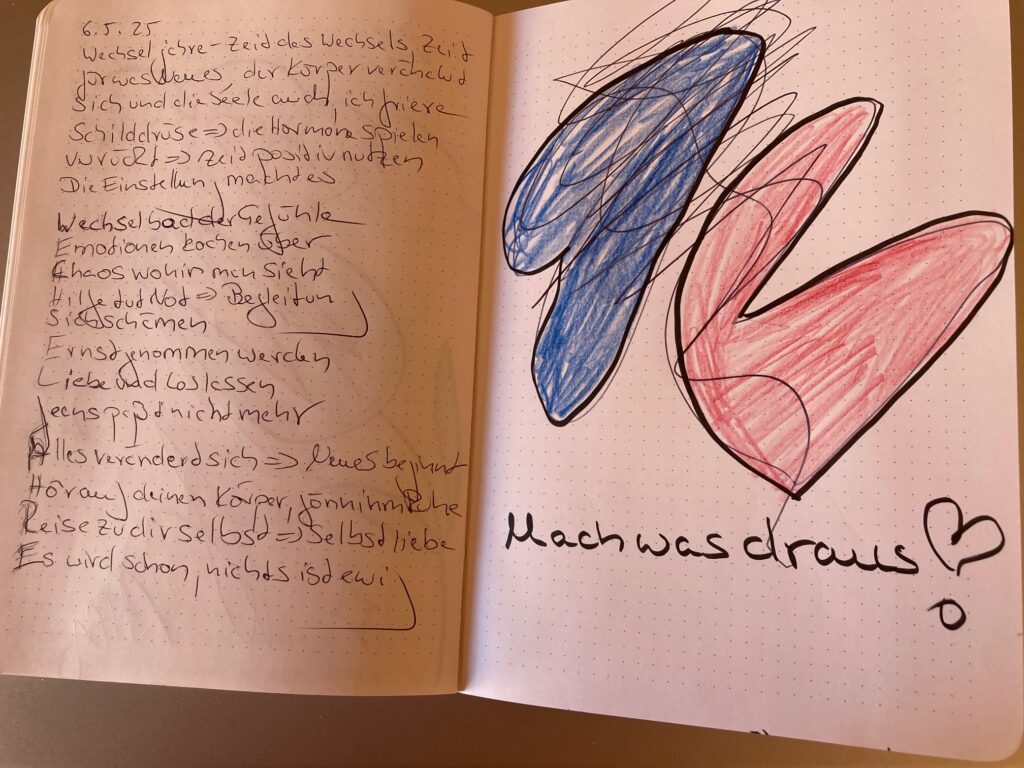 6.5.25
Wechseljahre - Zeit des Wechsels, Zeit
für was Neues, der Körper verändert
sich und die Seele auch, ich friere
Schilddrüse => die Hormone spielen
verrückt => Zeit positiv nutzen
Die Einstellung macht es
Wechselbad der Gefühle
Emotionen kochen über
Chaos wohin man sieht
Hilfe tut Not => Begleitung
Sich schämen
Ernst genommen werden
Liebe und Loslassen
Jeans paßt nicht mehr
Alles verändert sich => Neues beginnt
Hör auf deinen Körper, gönn ihm Ruhe
Reise zu dir selbst => Selbstliebe
Es wird schon, nichts ist ewig
Mach was draus